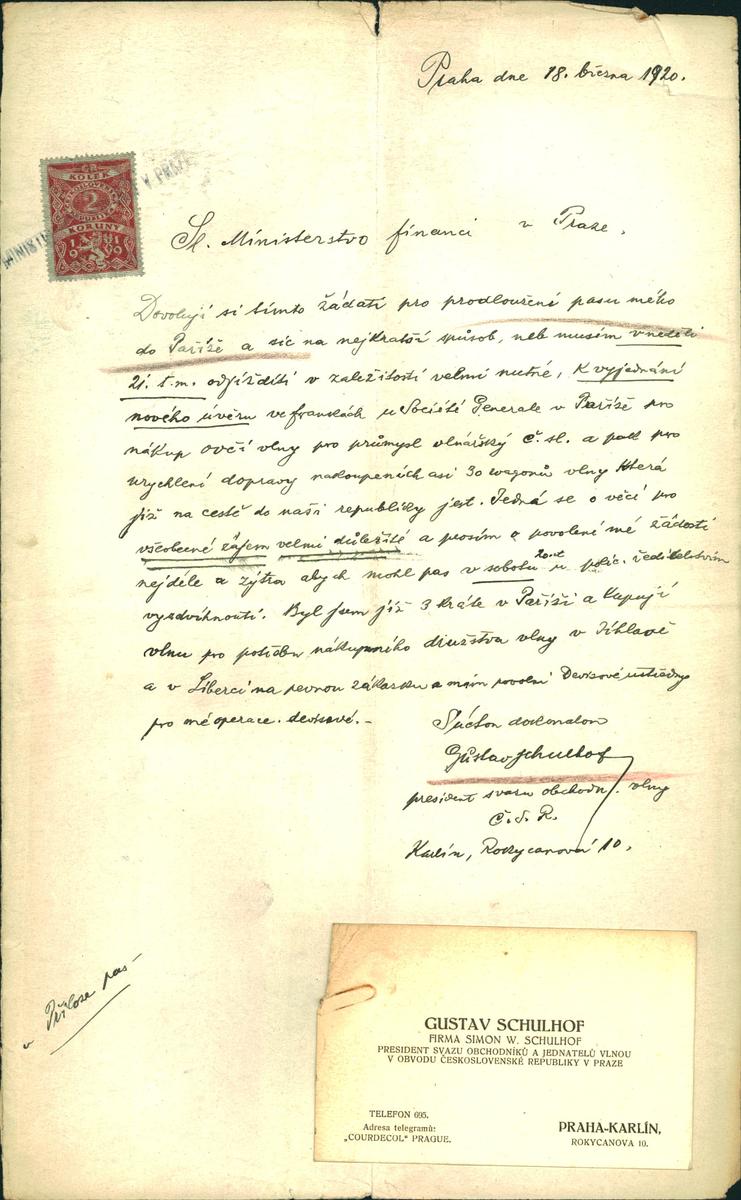 Praha dne 18. března 1920.
KOLEK
2
KORUNY
1919
V PRAZE
Sl. Ministerstvo financí v Praze.
Dovoluji si tímto žádati pro prodloužení pasu mého
do Paříže a sic na nejkratší způsob, neb musím v neděli
21. t.m. odjížděti v záležitosti velmi nutné, k vyjednání
nového úvěru ve francích u Société Generale v Paříži pro
nákup ovčí vlny pro průmysl vlnařský Č. sl. a pak pro
urychlení dopravy nakoupených asi 30 wagonů vlny která
již na cestě do naší republiky jest. Jedná se o věci pro
všeobecné zájem velmi důležité a prosím o povolení mé žádosti
nejdéle a zýtra abych mohl pas v sobotu 20. u polic. ředitelstvím
vyzdvihnouti. Byl jsem již 3 kráte v Paříži a kupuji
vlnu pro potřebu nákupního družstva vlny v Jihlavě
a v Liberci na pevnou zákazku a mám povolní Devisové ústředny
pro mé operace devisové. –
S úctou dokonalou
Gustav Schulhof
president svazu obchodn. vlny
Č.S.R.
Karlín, Rokycanova 10.
v Příloze pas
GUSTAV SCHULHOF
FIRMA SIMON W. SCHULHOF
PRESIDENT SVAZU OBCHODNÍKŮ A JEDNATELŮ VLNOU
V OBVODU ČESKOSLOVENSKÉ REPUBLIKY V PRAZE
TELEFON 695.
Adresa telegramů:
„COURDECOL“ PRAGUE.
PRAHA-KARLÍN,
ROKYCANOVA 10.